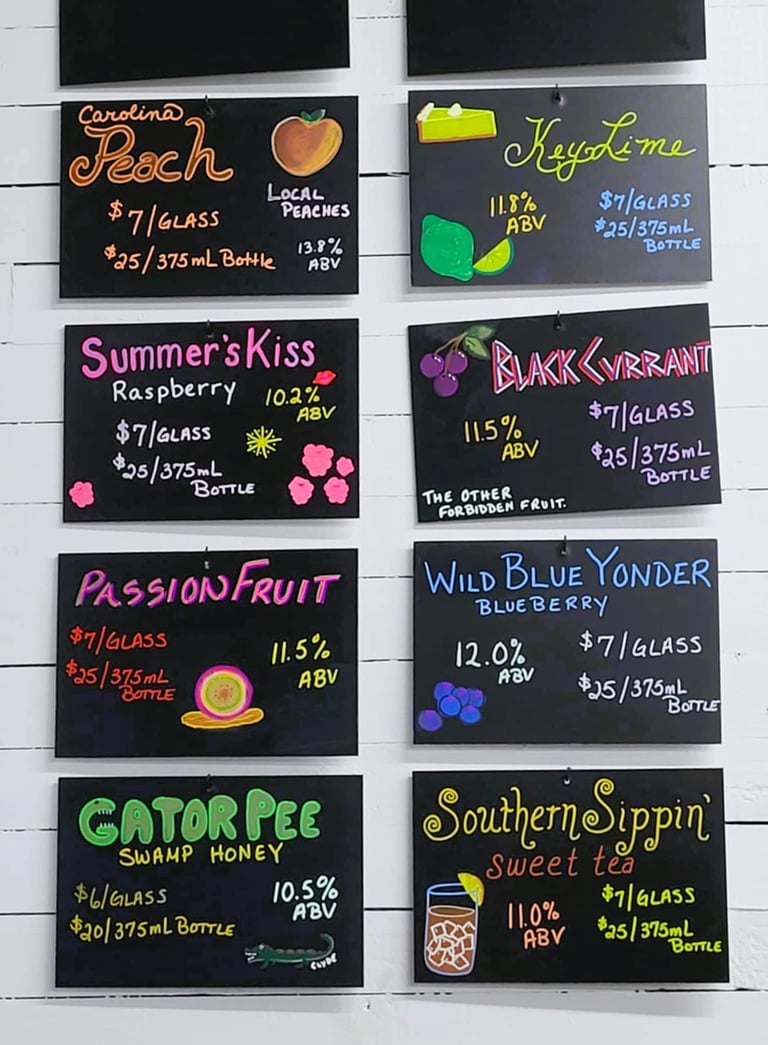 Carolina
Peach
LOCAL
PEACHES
$7/GLASS
$25/375mL Bottle
13.8%
ABV
Key Lime
11.8%
ABV
$7/GLASS
$25/375mL
BOTTLE
Summer's Kiss
Raspberry
10.2%
ABV
$7/GLASS
$25/375mL
BOTTLE
BLACK CURRANT
11.5%
ABV
$7/GLASS
$25/375mL
BOTTLE
THE OTHER
FORBIDDEN FRUIT.
PASSION FRUIT
$7/GLASS
$25/375mL
BOTTLE
11.5%
ABV
WILD BLUE YONDER
BLUEBERRY
12.0%
ABV
$7/GLASS
$25/375mL
BOTTLE
GATOR PEE
SWAMP HONEY
$6/GLASS
$20/375mL BOTTLE
10.5%
ABV
CLYDE
Southern Sippin'
sweet tea
11.0%
ABV
$7/GLASS
$25/375mL
BOTTLE